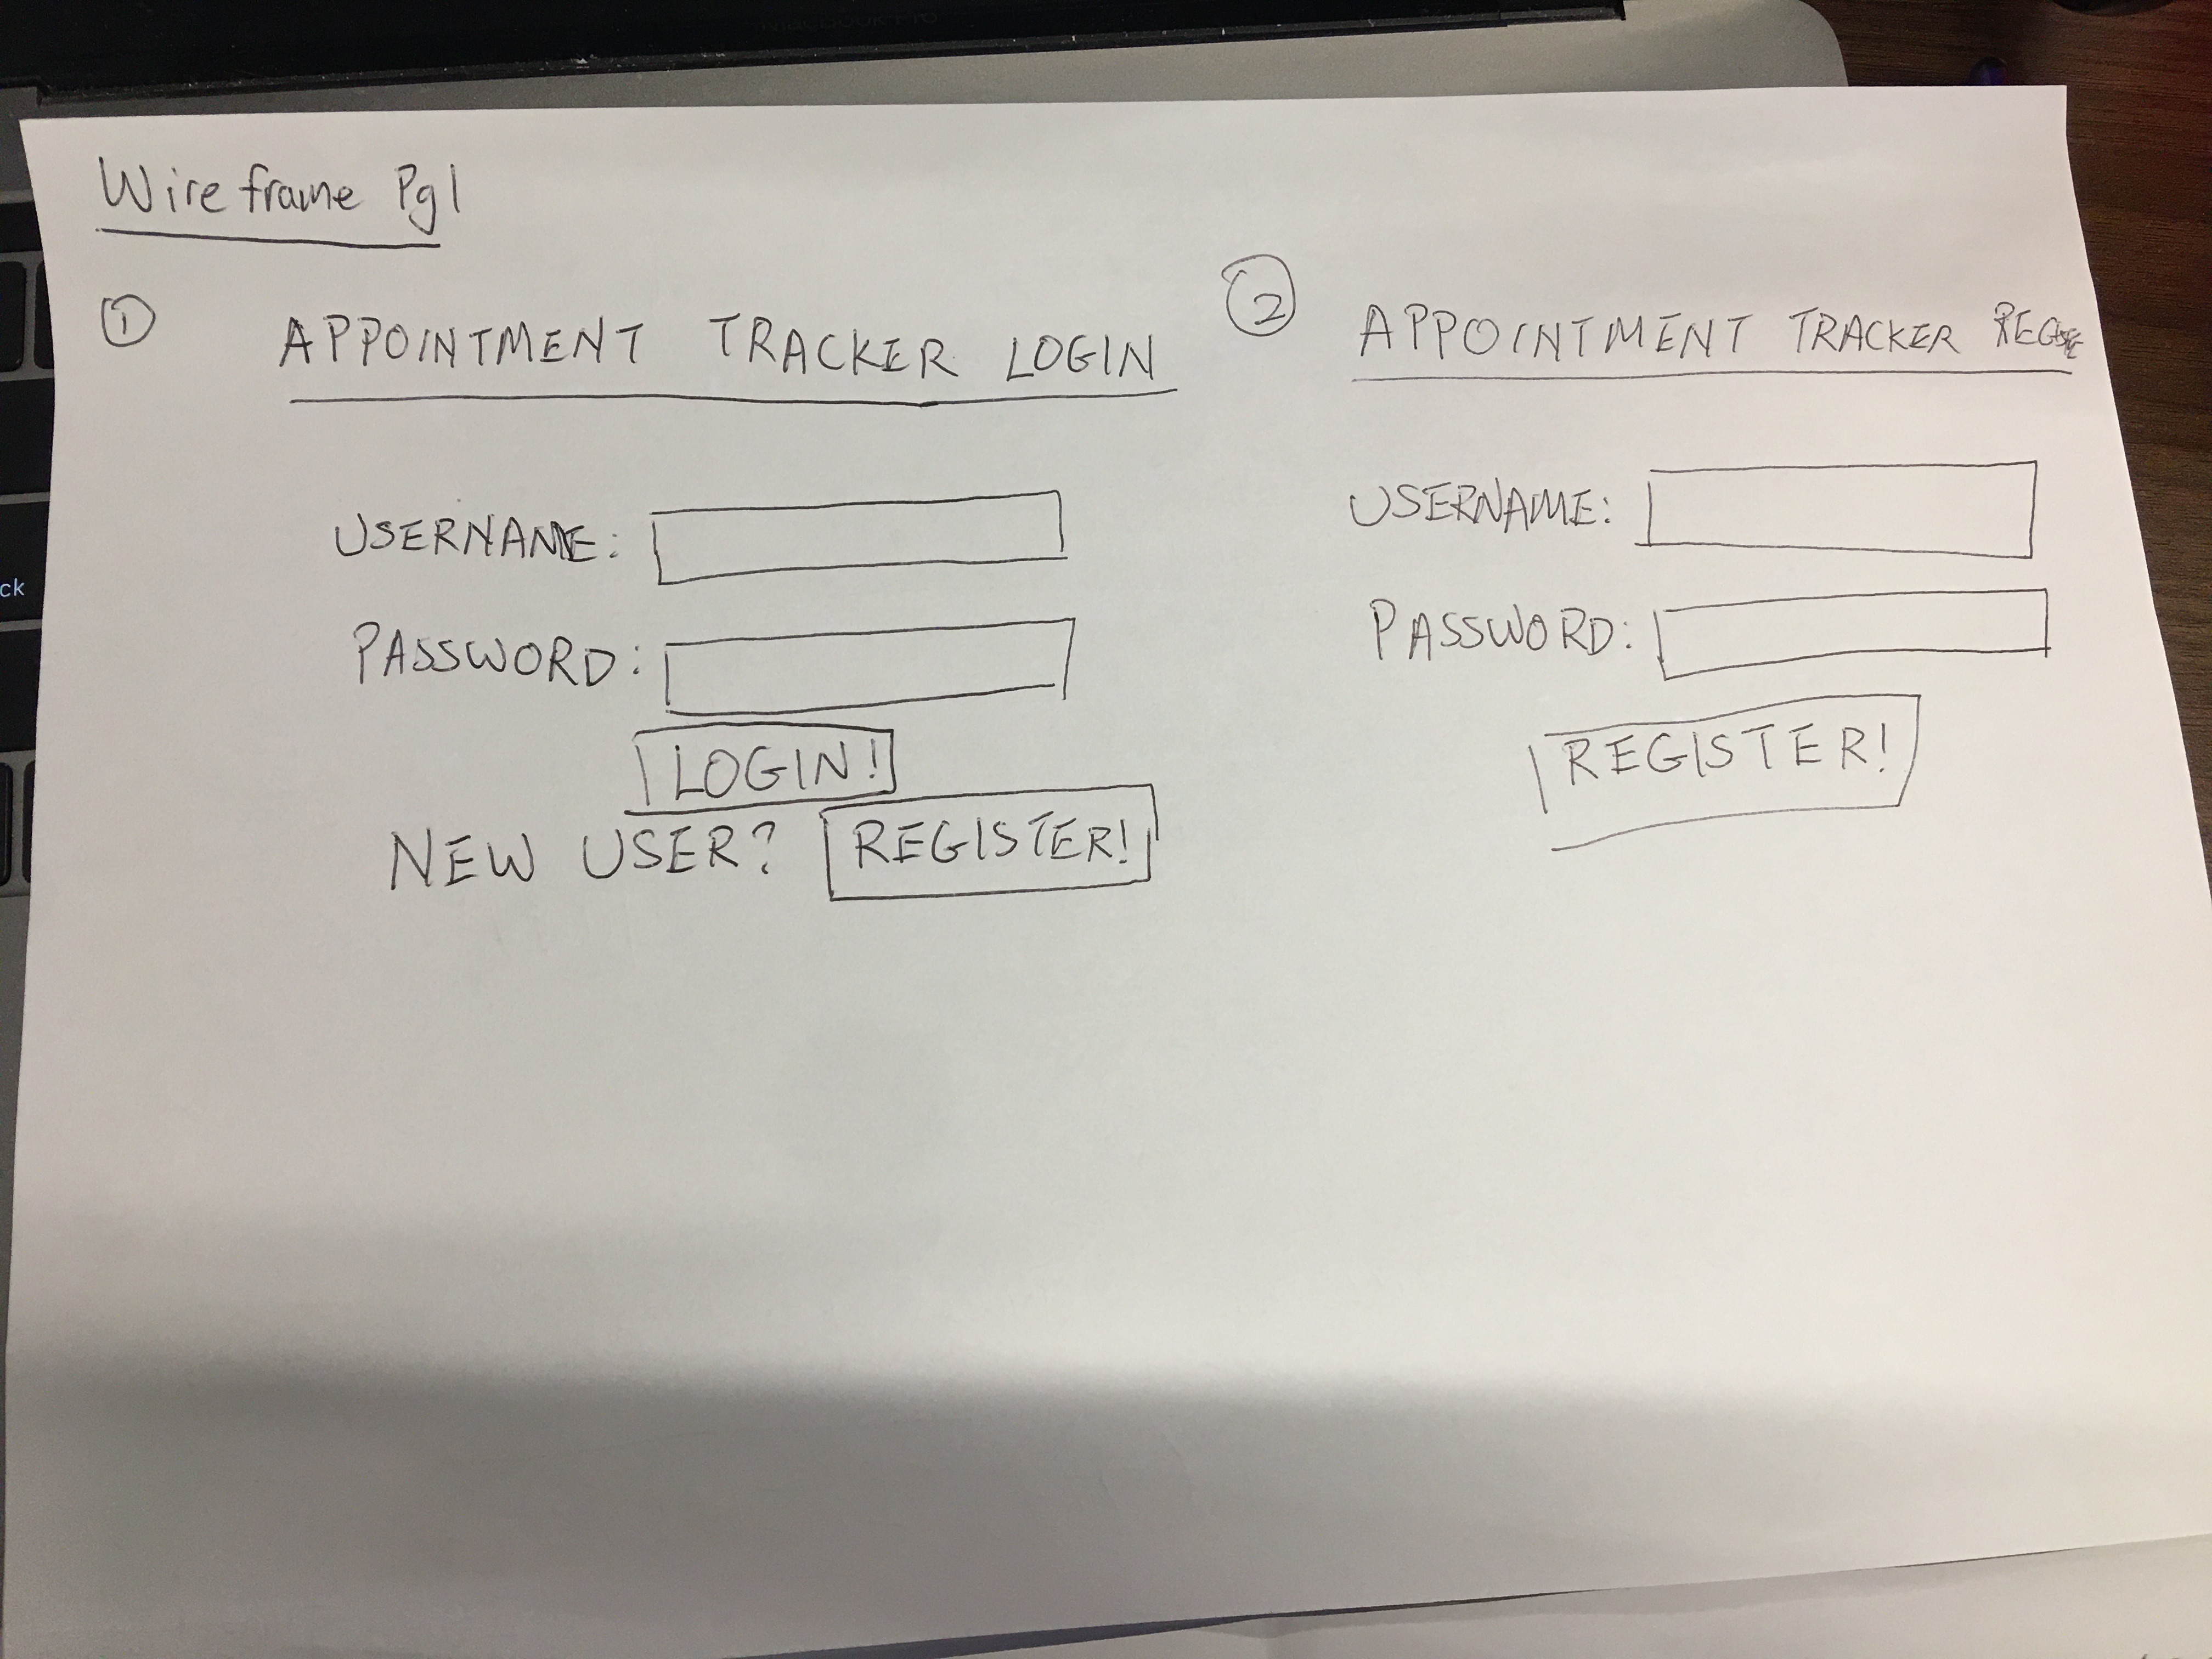 ck
Wireframe Pg 1
①
APPOINTMENT TRACKER LOGIN
USERNAME:
PASSWORD:
LOGIN!
NEW USER? REGISTER!
②
APPOINTMENT TRACKER
USERNAME:
PASSWORD:
REGISTER!